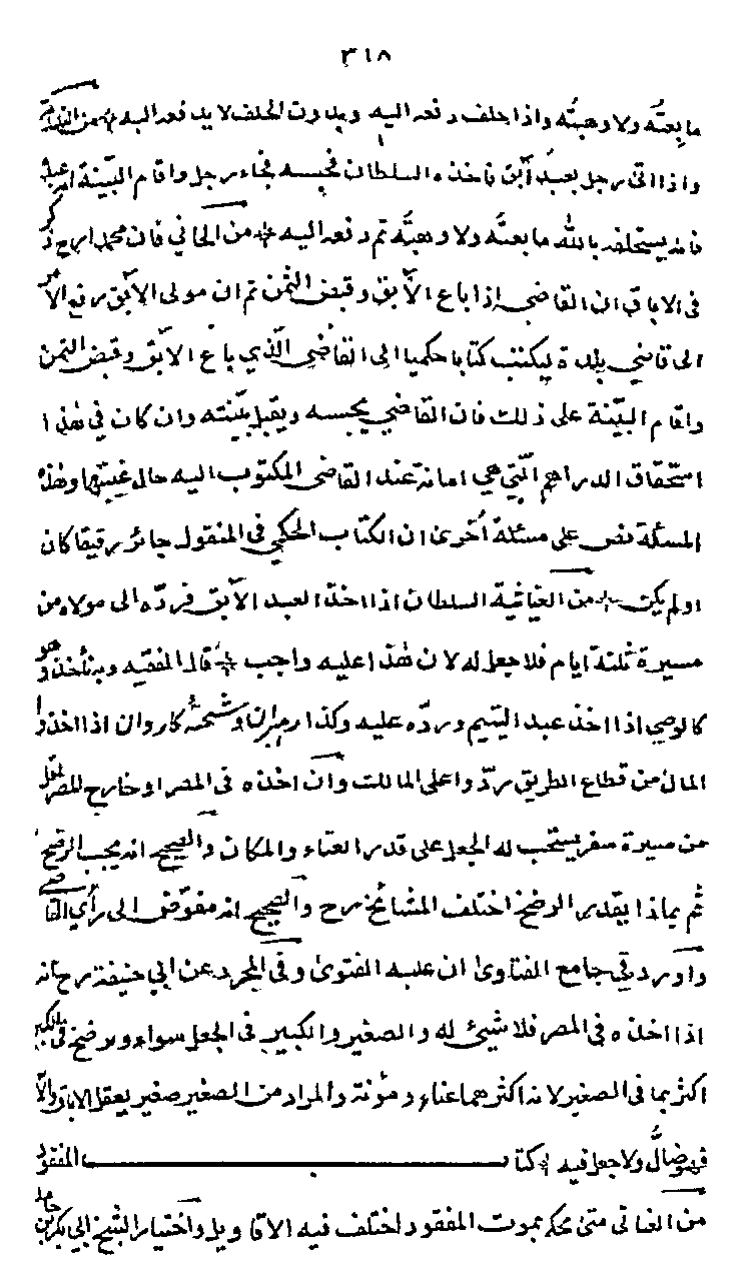 ٣١٨
ما بعتَه ولا وهبتَه واذا حلف دفعه اليه وبدون الحلف لا يدفعه اليه من
واذا اتى رجل بعبد آبق فاخذه السلطان فحبسه فجاء رجل واقام البيّنة انه عبده
فانه يستحلفه بالله ما بعتَه ولا وهبتَه ثم دفعه اليه من الخاني فان محمدا رح ذكر
فى الاباق ان القاضي اذا باع الآبق وقبض الثمن ثم ان مولى الآبق رفع الامر
الى قاضي بلدة ليكتب كتابا حكميا الى القاضى الّذي باع الآبق وقبض الثمن
واقام البيّنة على ذلك فان القاضي يجيبه ويقبل بيّنته وان كان في هٰذا
استحقاق الدراهم الّتي هي امانة عند القاضى المكتوب اليه حال غيبتها وهٰذه
المسئلة نص على مسئلة اُخرىٰ ان الكتاب الحكمي فى المنقول جائز رقيقا كان
اولم يكن من الغياثية السلطان اذا اخذ العبد الآبق فردّه الى مولاه من
مسيرة ثلثة ايام فلا جعل له لان هٰذا عليه واجب قال الفقيه وبه نأخذ وهو
كالوصي اذا اخذ عبد اليتيم وردّه عليه وكذا راهبان وشحنهٔ كاروان اذا اخذوا
المال من قطاع الطريق ردّوا على المالك وان اخذه فى المصر او خارج المصر لاقل
من مسيرة سفر يستحب له الجعل على قدر العناء والمكان والصحيح انه يجب الرضخ
ثم بماذا يقدر الرضخ اختلف المشائخ رح والصحيح انه مفوّض الى رأي القاضي
واورد في جامع الفتاوىٰ ان عليه الفتوىٰ وفى المجرد عن ابي حنيفة رح انه
اذا اخذه فى المصر فلا شيئ له والصغير والكبير فى الجعل سواء ويرضخ في الكبير
اكثر مما فى الصغير لانه اكثرهما عناء ومؤنة والمراد من الصغير صغير يعقل الاباق والّا
فهو ضالّ ولا جعل فيه كتاب المفقود
من العتابي متىٰ يحكم بموت المفقود اختلف فيه الاقاويل واختيار الشيخ ابي بكر بن حامد